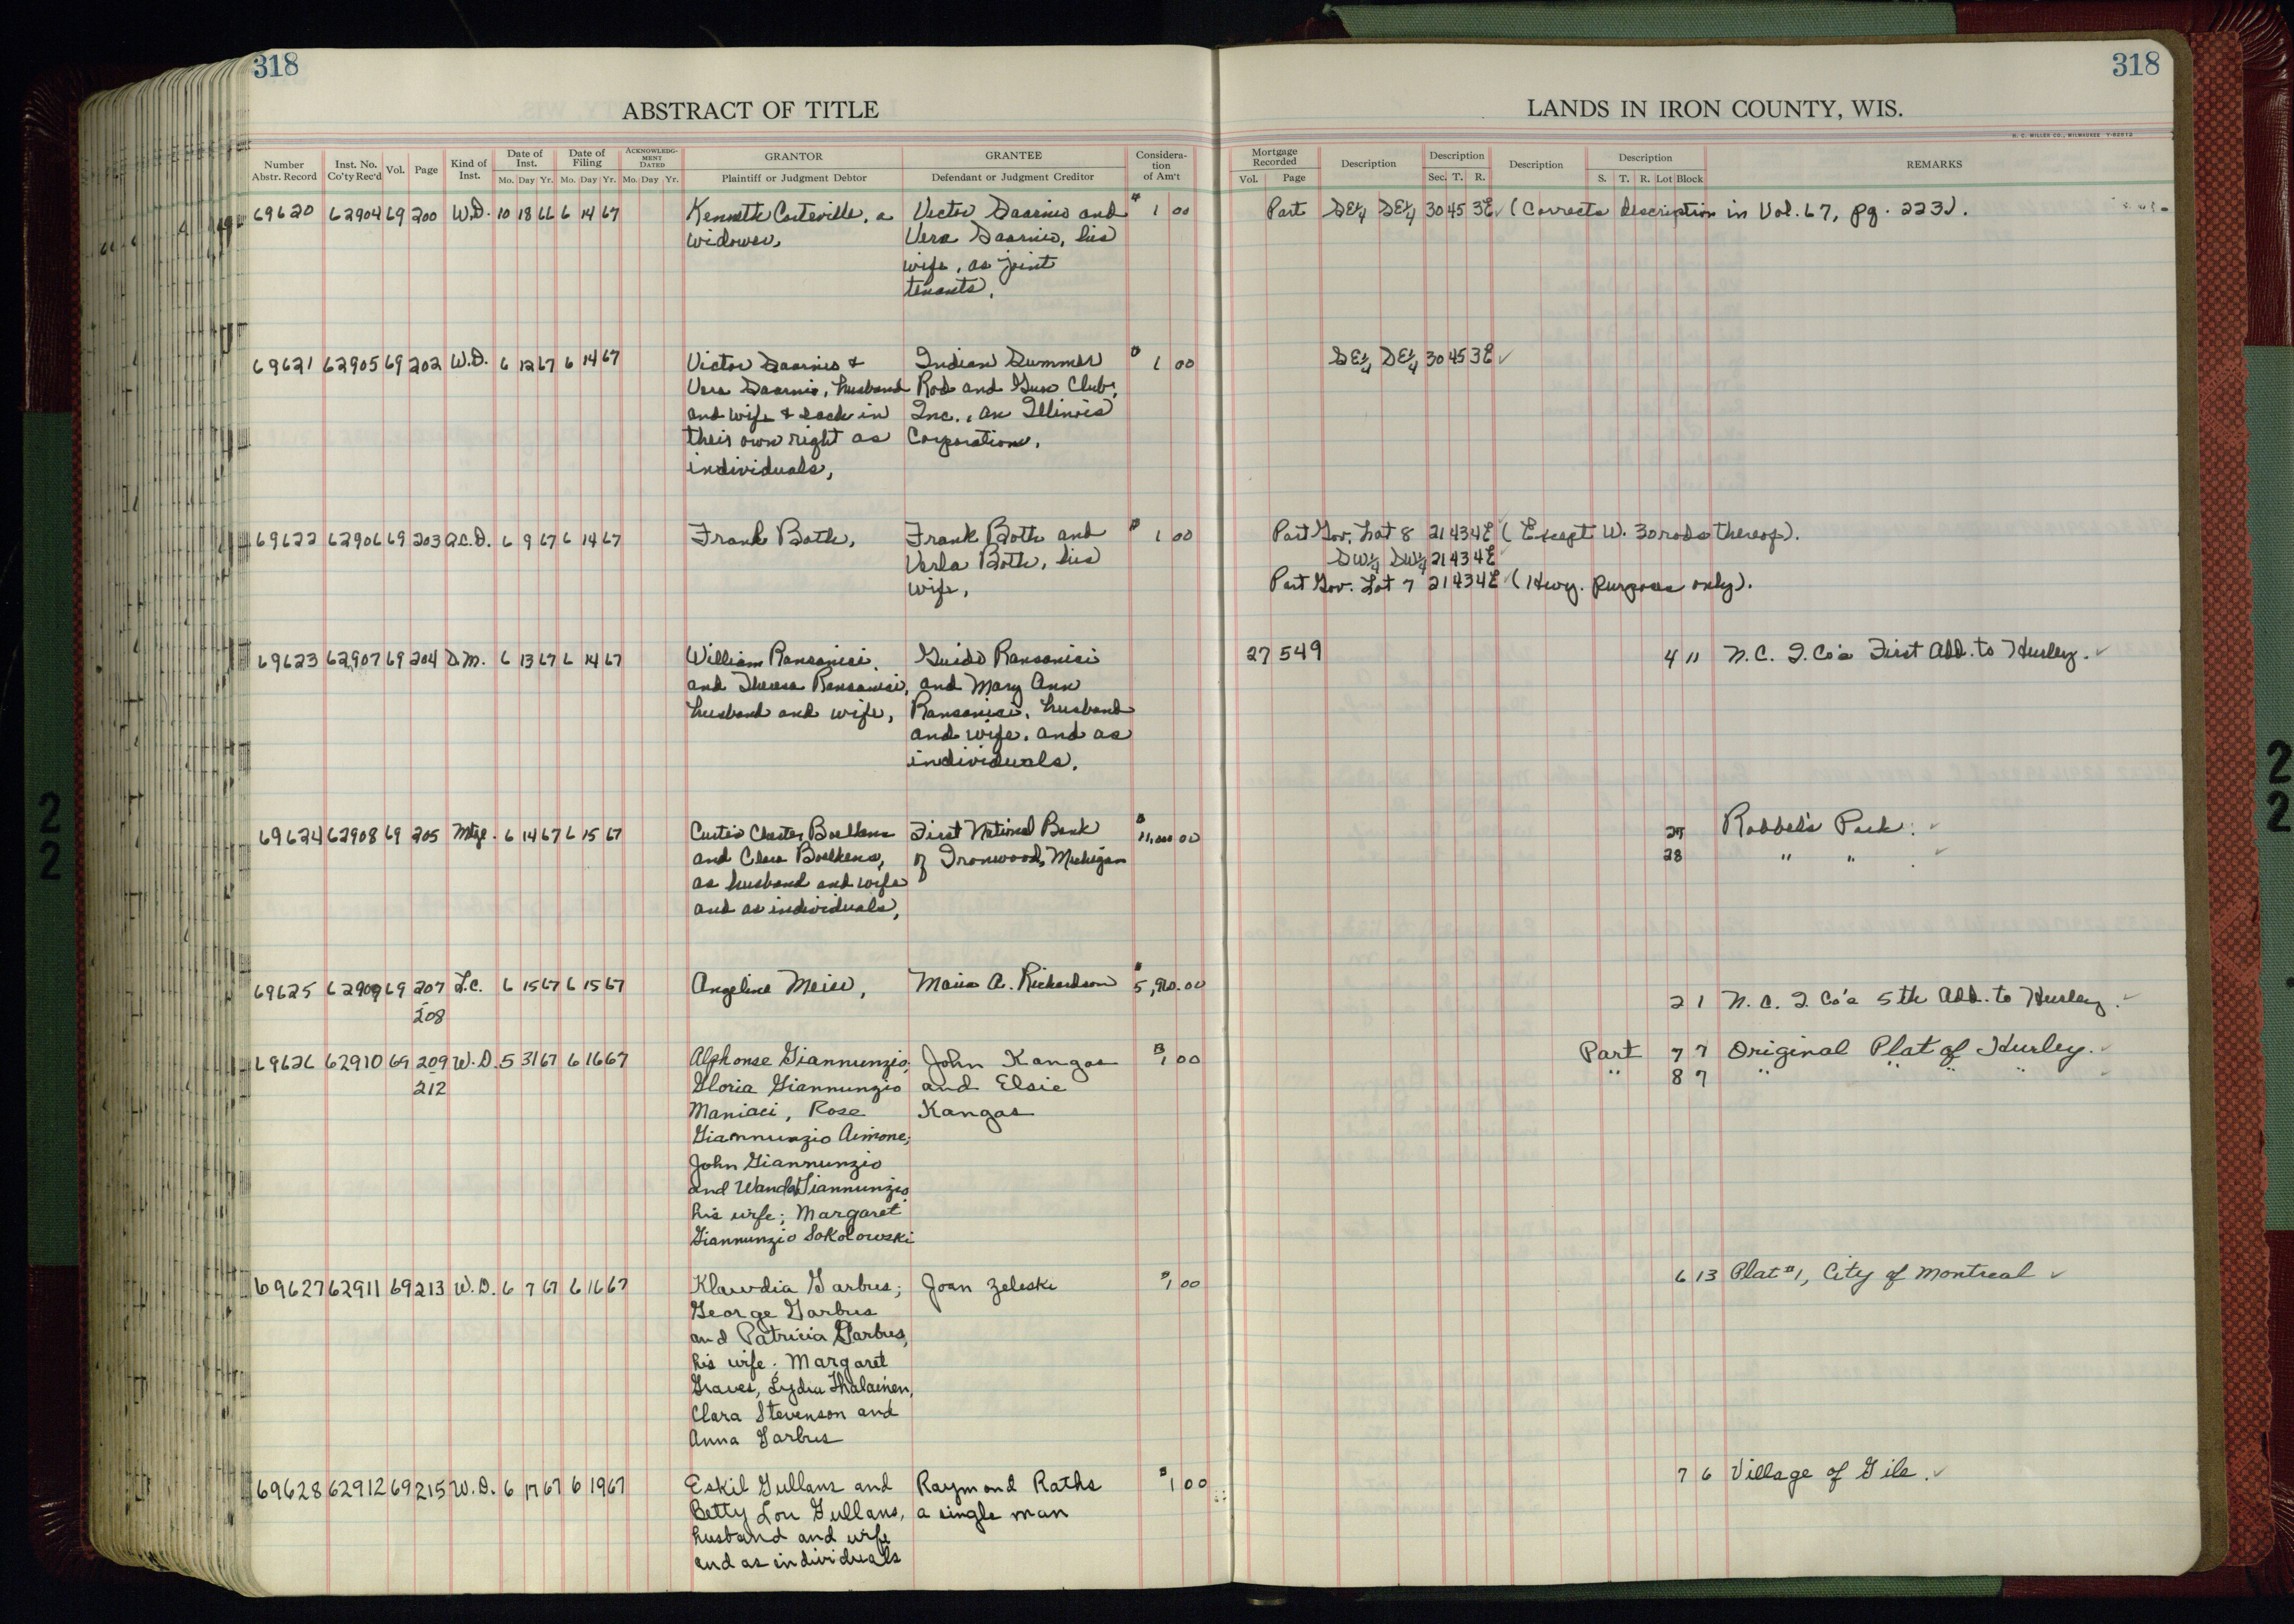 318
318
ABSTRACT OF TITLE
LANDS IN IRON COUNTY, WIS.
H. C. MILLER CO., MILWAUKEE
Number Abstr. Record Inst. No. Co'ty Rec'd Vol. Page Kind of Inst. Date of Inst. Mo. Day Yr. Date of Filing Mo. Day Yr. ACKNOWLEDGMENT DATED Mo. Day Yr. GRANTOR Plaintiff or Judgment Debtor GRANTEE Defendant or Judgment Creditor Consideration of Am't
Mortgage Recorded Vol. Page Description Description Sec. T. R. Description Description S. T. R. Lot Block REMARKS
69620 62904 69 200 W.D. 10 18 66 6 14 67 Kenneth Corteville, a Victor Saarnio and $ 1 00 Part SE¼ SE¼ 30 45 3E (Corrects description in Vol. 67, pg. 223).
widower, Vera Saarnio, his
wife, as joint
tenants.
69621 62905 69 202 W.D. 6 12 67 6 14 67 Victor Saarnio & Indian Summer $ 1 00 SE¼ SE¼ 30 45 3E
Vera Saarnio, husband Rod and Gun Club,
and wife & each in Inc., an Illinois
their own right as Corporation.
individuals,
69622 62906 69 203 Q.C.D. 6 9 67 6 14 67 Frank Both, Frank Both and $ 1 00 Part Gov. Lot 8 21 43 4E (Except W. 30 rods thereof).
Verla Both, his SW¼ SW¼ 21 43 4E
wife, Part Gov. Lot 7 21 43 4E (Hwy. purposes only).
69623 62907 69 204 D.M. 6 13 67 6 14 67 William Ransanici, Guido Ransanici 27 549 4 11 N.C. I. Co's First Add. to Hurley.
and Theresa Ransanici, and Mary Ann
husband and wife, Ransanici, husband
and wife, and as
individuals.
69624 62908 69 205 Mtge. 6 14 67 6 15 67 Curtis Chester Boelkens First National Bank $ 11,000 00 27 Robbel's Park.
and Clara Boelkens, of Ironwood, Michigan 28 " "
as husband and wife
and as individuals,
69625 62909 69 207 L.C. 6 15 67 6 15 67 Angeline Meier, A. Richardson $ 2 1 N.C. I. Co's 5th Add. to Hurley.
- 208
69626 62910 69 209 W.D. 5 31 67 6 16 67 Alphonse Giannunzio, John Kangas $ 1 00 Part 7 7 Original Plat of Hurley.
- 212 Gloria Giannunzio and Elsie " 8 7 " " " "
Maniaci, Rose Kangas
Giannunzio Aimone;
John Giannunzio
and Wanda Giannunzio
his wife; Margaret
Giannunzio Sokolowski
69627 62911 69 213 W.D. 6 7 67 6 16 67 Klawdia Garbus; Joan Zeleske $ 1 00 6 13 Plat #1, City of Montreal
George Garbus
and Patricia Garbus,
his wife. Margaret
Graves, Lydia Ihalainen,
Clara Stevenson and
Anna Garbus
69628 62912 69 215 W.D. 6 17 67 6 19 67 Eskil Gullans and Raymond Raths $ 1 00 7 6 Village of Gile.
Betty Lou Gullans, a single man
husband and wife
and as individuals
2
2
2
2